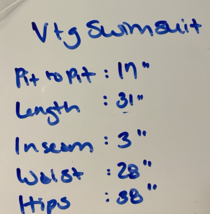 Vtg Swimsuit
Pit to Pit : 17"
Length : 31"
Inseam : 3"
Waist : 28"
Hips : 38"